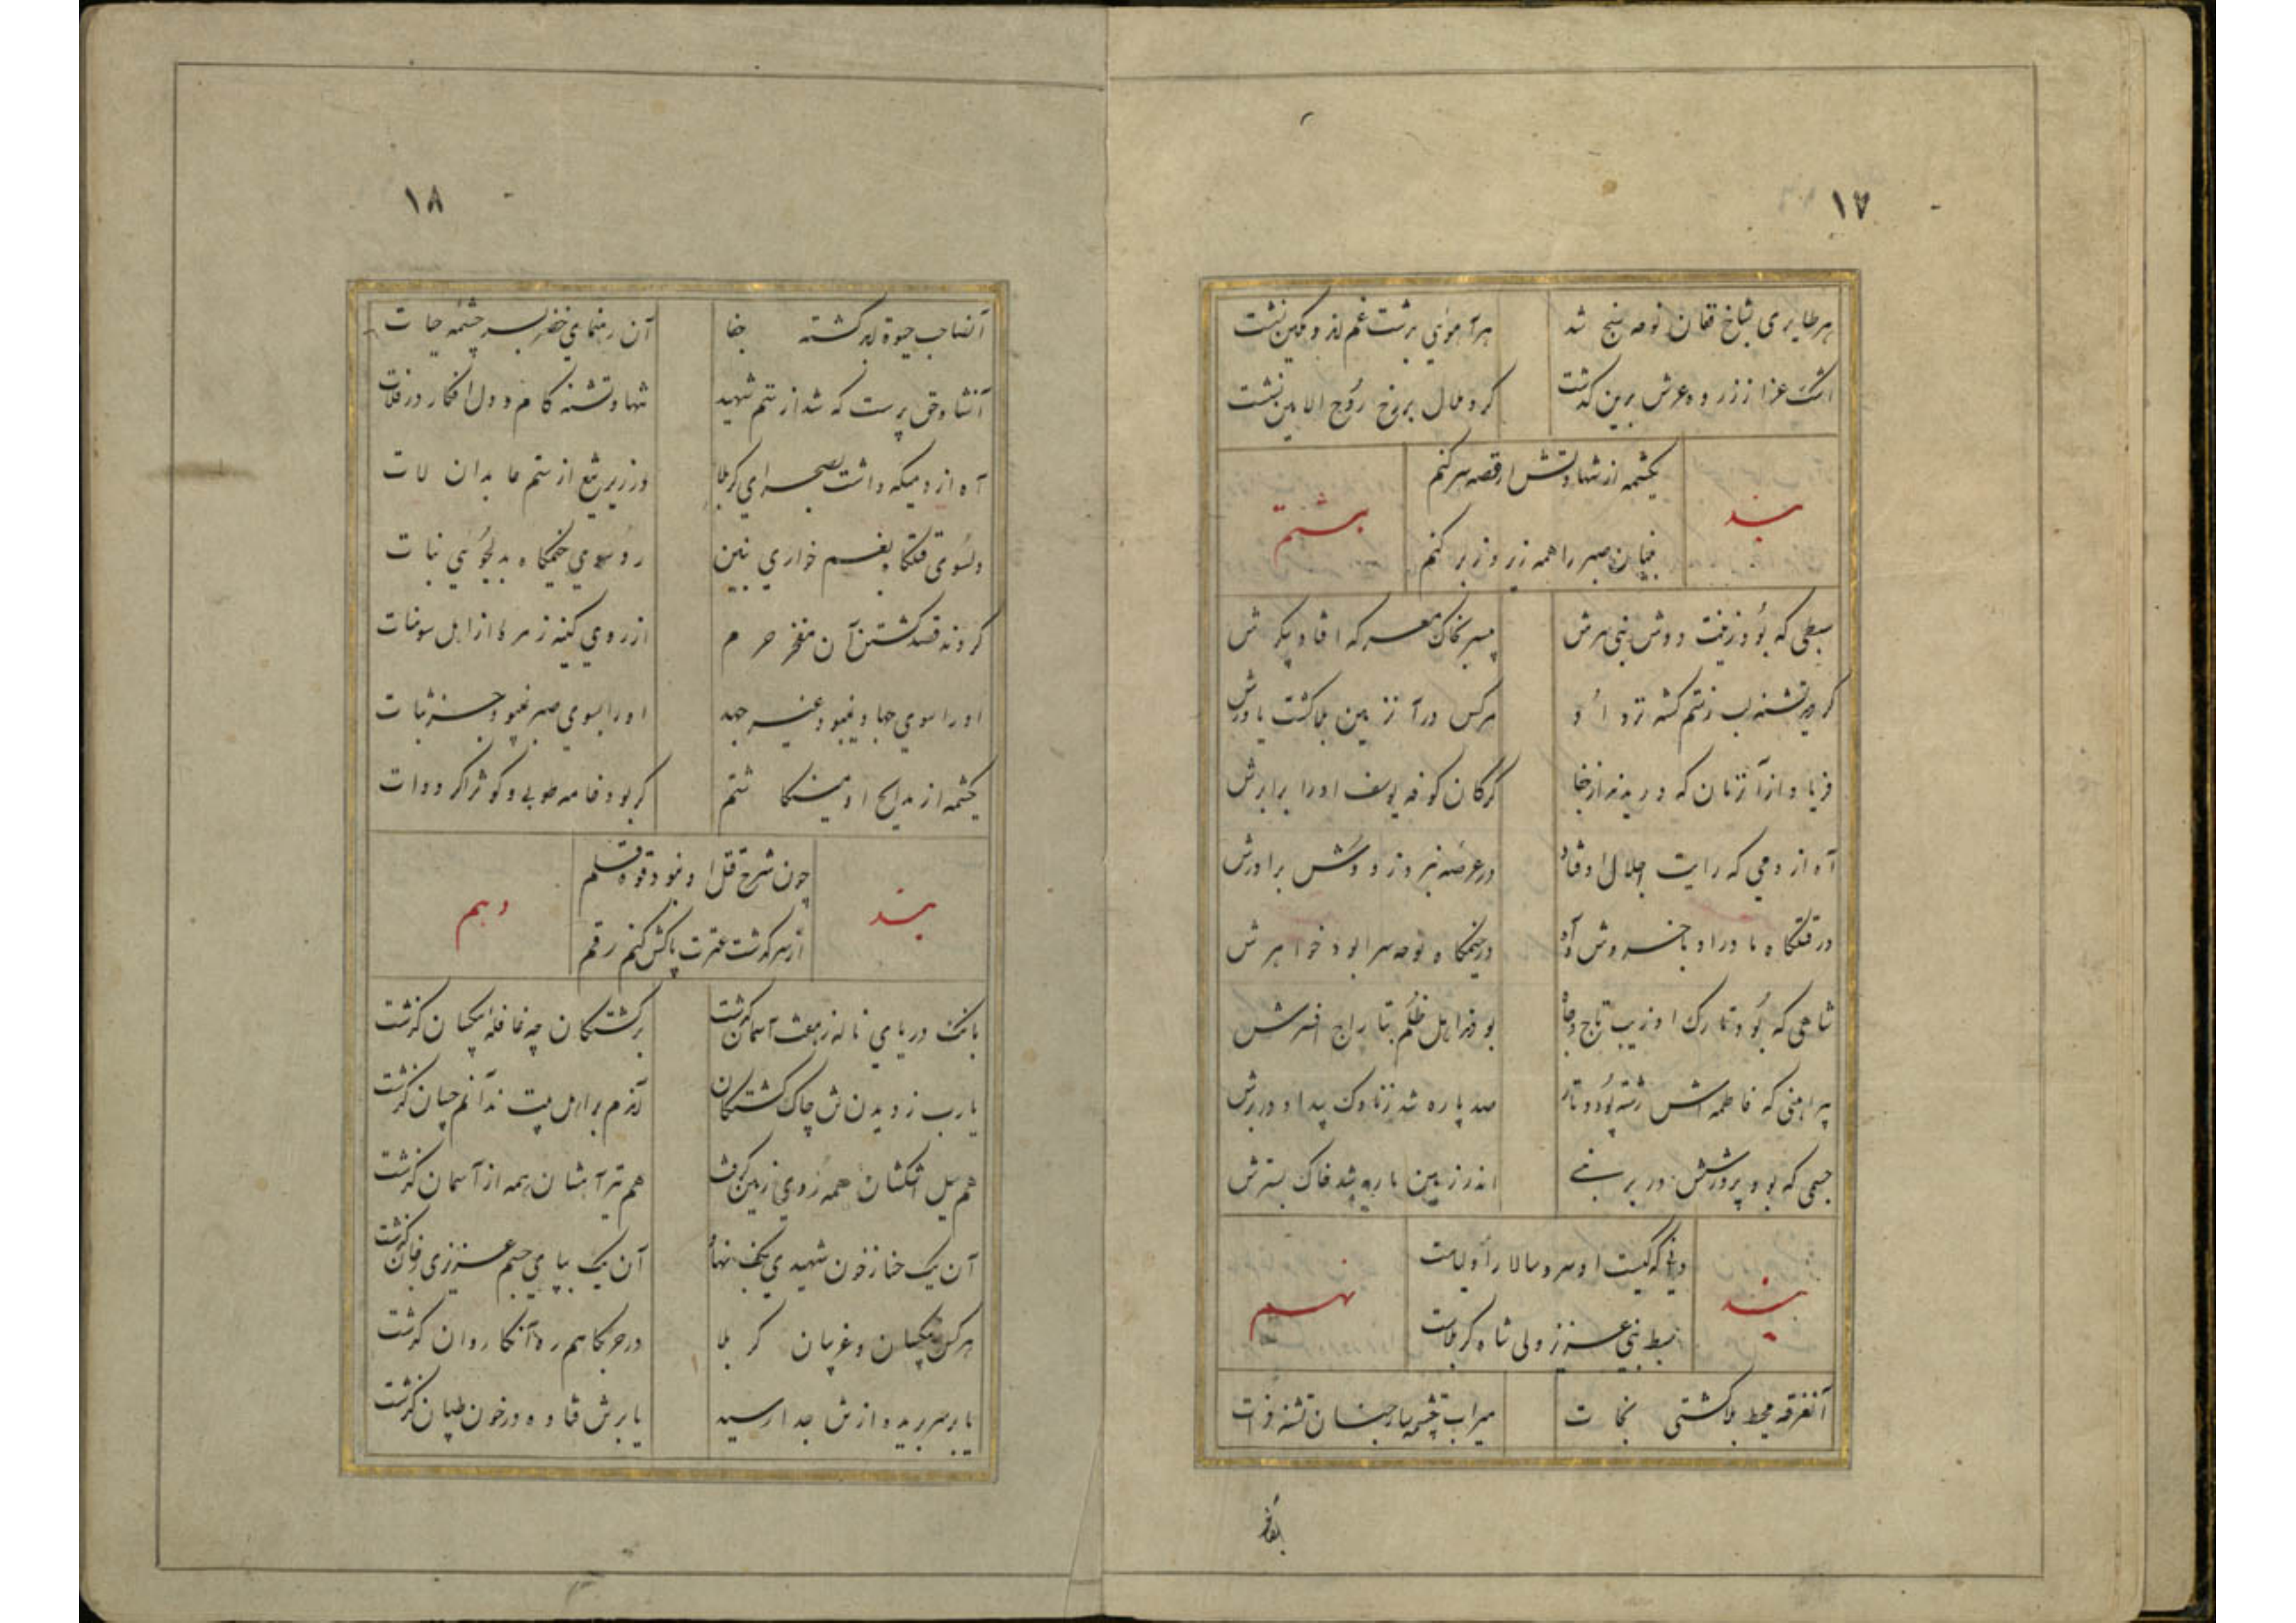 ۱۷
هر طایری بشاخ فغان نوحه سنج شد هر آهوئی بدشت غم اندوهگین نشست
اشک عزا ز ذروه عرش برین گذشت گرد ملال بر رخ روح الامین نشست
بند
یکشمه از شهادتش ار قصه سر کنم
هشتم
بنیان صبر را همه زیر و زبر کنم
سبطی که بود زینت دوش نبی سرش بر خاک معرکه افتاد پیکرش
کردند تشنه لب ز ستم کشته هر کس در آن زمین بلا گشت یاورش
فریاد از آن زمان که دریدند از جفا گرگان کوفه یوسف او را برابرش
آه از دمی که رایت اجلال او فتاد در عرصه نبرد ز دوش برادرش
در قتلگاه مادر او با خروش و آه در خیمگاه نوحه سرا بود خواهرش
شاهی که بود تارک او زیب تاج و جاه بردند اهل ظلم بتاراج افسرش
پیراهنی که فاطمه اش رشته پود و تار صد پاره شد ز ناوک بیداد در برش
جسمی که بود پرورشش در بر نبی اندر زمین ماریه شد خاک بسترش
بند
دانی که کیست او سر و سالار اولیاست
نهم
سبط نبی عزیز ولی شاه کربلاست
آن غرقه محیط بلا کشتی نجات میراب چشمه سار جنان تشنه فرات
۱۸
آنصاحب حیوة جفا آن رهنمای خضر بسر چشمه حیات
آنشاه حق پرست که شد از ستم شهید تنها و تشنه کام و دل افکار در فلات
آه از دمیکه داشت بصحرای کربلا در زیر تیغ از ستم عابدان لات
و رو سوی خیمگاه بدلجوئی بنات
کردند قصد کشتن آن مفخر حرم از روی کینه زمره از اهل سومنات
او را سوی جهاد نبود غیر جهد او را بسوی صبر نبود جز ثبات
یکشمه از مدایح او مینگاشتم گر بود خامه طوبی و کوثر اگر دوات
بند
چون شرح قتل او نبود قوه قلم
دهم
از سرگذشت عترت پاکش کنم رقم
بانک درای ناله ز هفت آسمان گذشت بر کشتگان چه قافله بیکسان گذشت
یارب ز دیدن تن چاک کشتگان آندم بر اهل بیت ندانم چسان گذشت
هم سیل اشکشان همه روی زمین گرفت هم تیر آهشان همه از آسمان گذشت
آن یک حنا ز خون شهیدی بکف نهاد آن یک بپای جسم عزیزی ز جان گذشت
هر کس بیکسان و غریبان کربلا در حربگاهم ره آنکاروان گذشت
یا بر سر بریده از تن جدا رسید یا بر تن فتاده در خون طپان گذشت